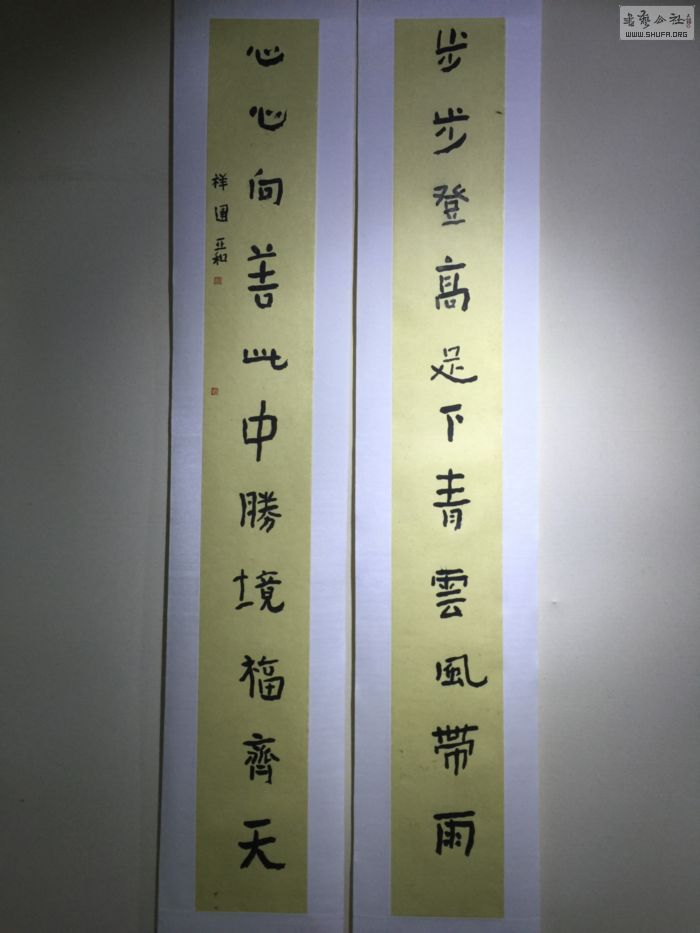 步步登高足下青雲風帶雨
心心向善此中勝境福齊天
祥圃亞和
書藝公社
WWW.SHUFA.ORG